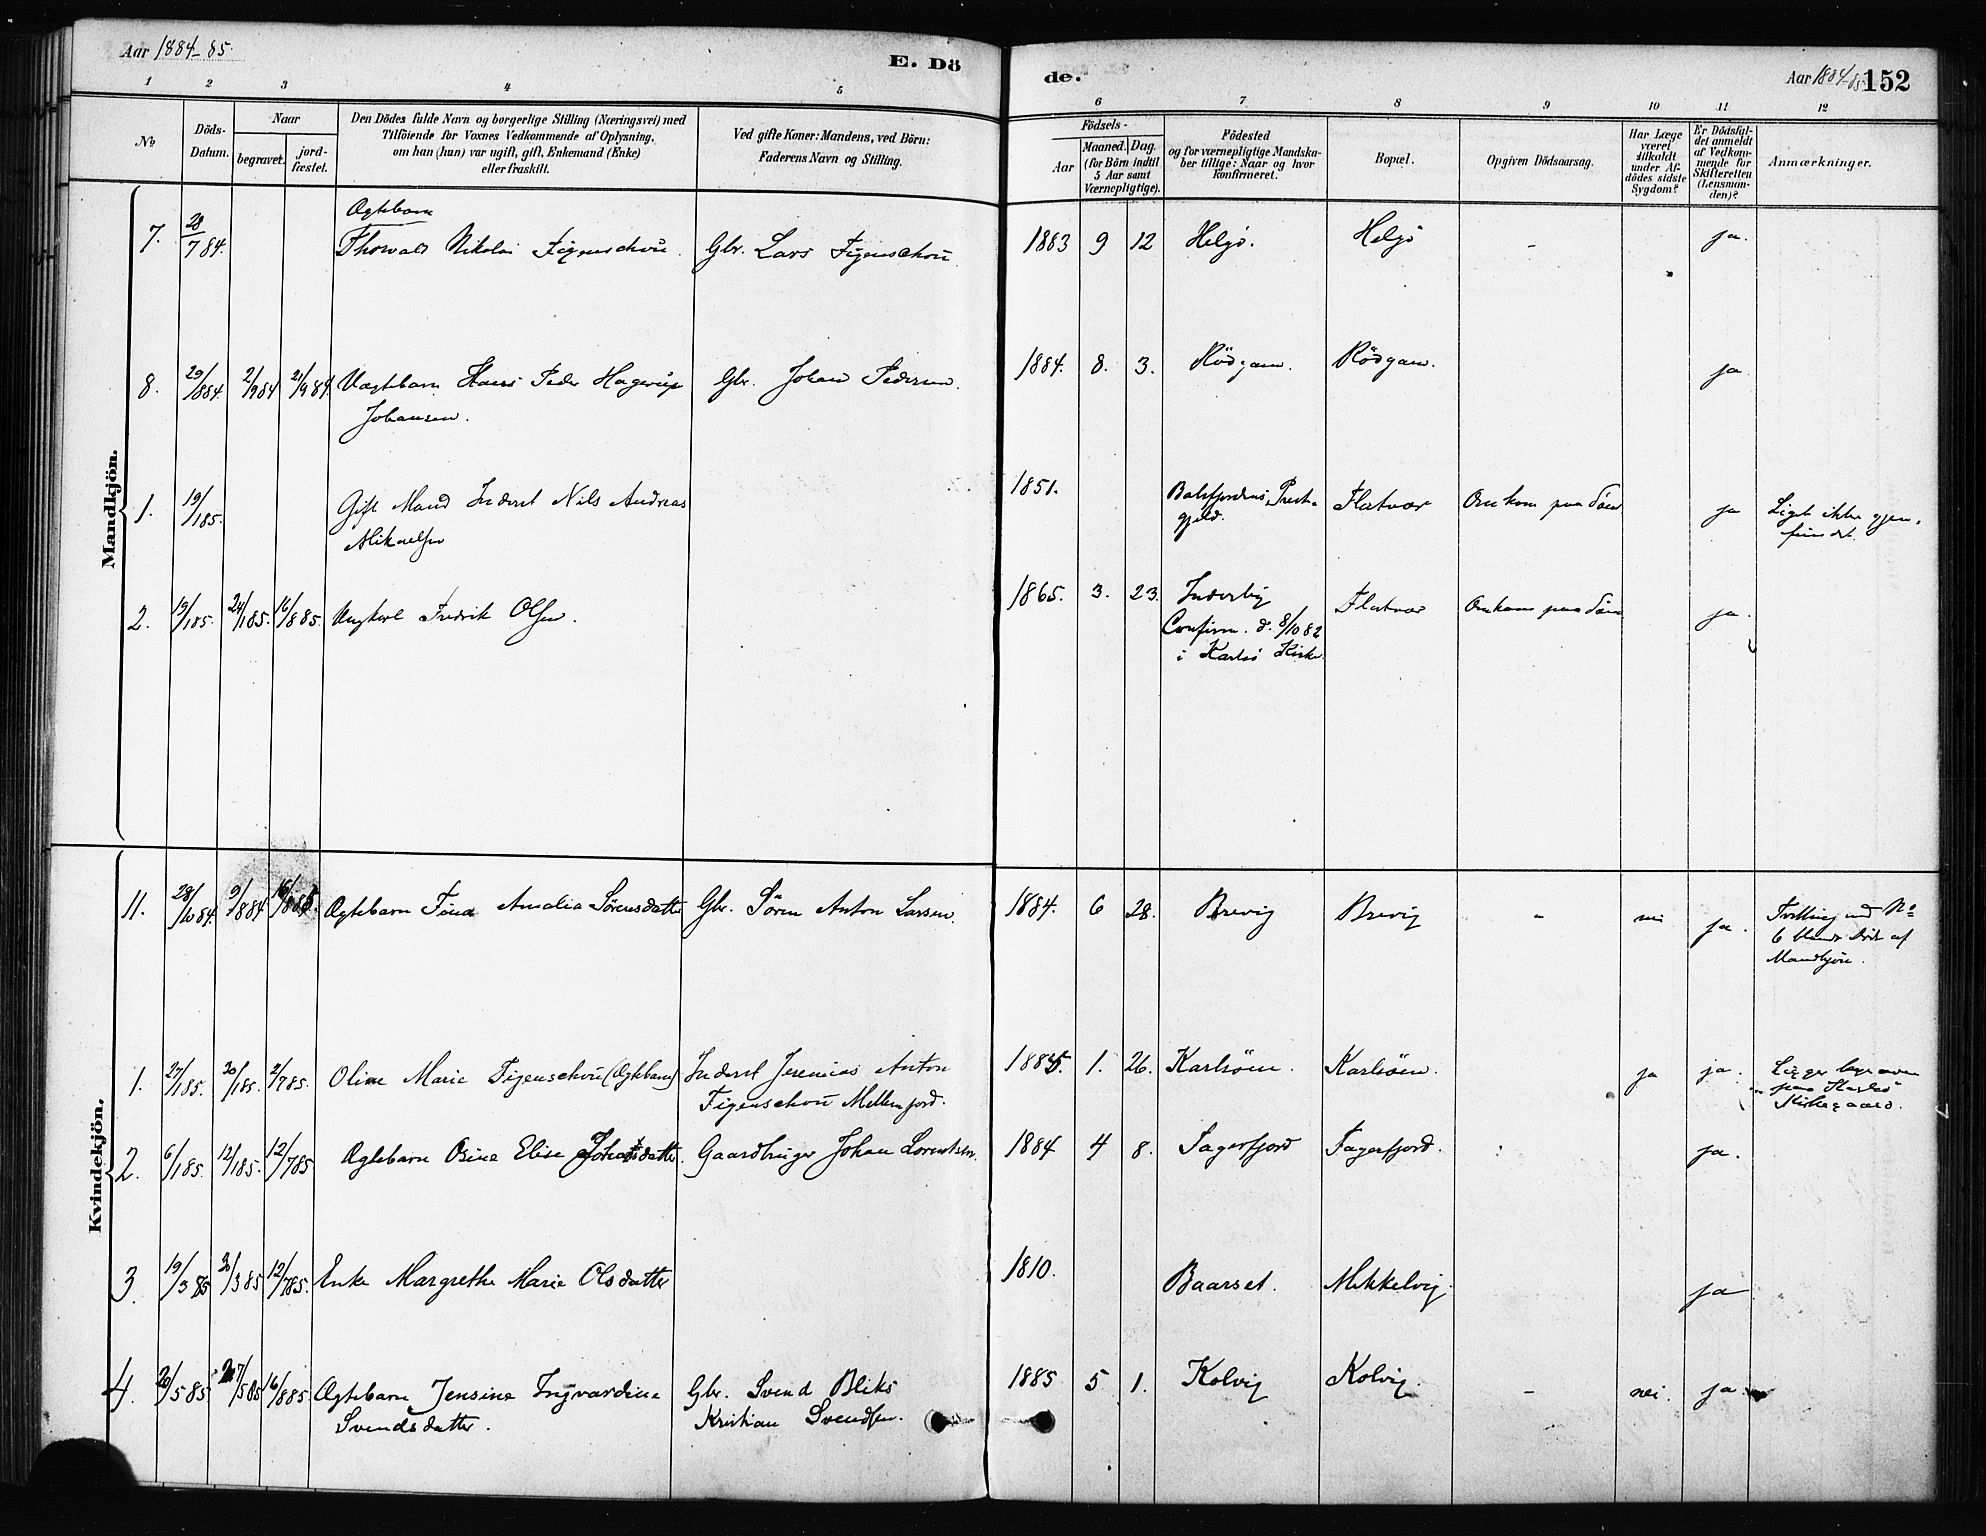 Aar 1884-85.
E. Dö
de.
Aar 1884-85
152
1
2
3
4
5
6
7
8
9
10
11
12
No
Döds-
Datum.
Naar
begravet.
jord-
fæstet.
Den Dödes fulde Navn og borgerlige Stilling (Næringsvei) med
Tilföiende for Voxnes Vedkommende af Oplysning,
om han (hun) var ugift, gift, Enkemand (Enke)
eller fraskilt.
Ved gifte Koner: Mandens, ved Börn:
Faderens Navn og Stilling.
Födsels-
Aar
Maaned.
Dag.
(for Börn indtil
5 Aar samt
Værnepligtige).
Födested
og for værnepligtige Mandska-
ber tillige: Naar og hvor
konfirmeret.
Bopæl.
Opgiven Dödsaarsag.
Har Læge
været
tilkaldt
under Af-
dödes sidste
Sygdom?
Er Dödsfal-
det anmeldt
af Vedkom-
mende for
Skifteretten
(Lensman-
den)?
Anmærkninger.
Mandkjön.
7.
28/7 84.
Ægtebarn
Thorvald Nikolai Figenschou.
Gbr. Lars Figenschou.
1883
9
12
Helgö.
Helgö
-
ja.
8.
29/8 84.
2/9 84
2/9 84.
Uægtebarn Hans Peder Hagerup
Johansen.
Gbr. Johan Pedersen.
1884.
8.
3.
Rödgam.
Rödgam.
ja
1.
19/1 85.
Gift Mand Inderst Nils Andreas
Mikaelsen
1851.
Balsfjordens Præst-
gjeld.
Flatvær
Omkom paa Söen
ja
Liget ikke gjen-
fundet.
2.
19/1 85.
24/1 85.
16/8 85.
Ungkarl Fredrik Olsen.
1865.
3.
23.
Inderby
Confirm. d. 8/10 82
i Karlsö Kirke.
Flatvær
Omkom paa Söen
ja.
Kvindekjön.
11.
28/10 84.
9/8 84
16/8 85.
Ægtebarn Amalia Sörensdatter
Gbr. Sören Anton Larsen.
1884.
6
28.
Brevig
Brevig
-
nei
ja.
Tvilling med No
6 blandt döde af
Mandkjön.
1.
27/1 85.
30/1 85.
2/7 85.
Oline Marie Figenschou (Ægtebarn)
Inderst Jeremias Anton
Figenschou Mellemjord.
1885.
1.
26.
Karlsöen
Karlsöen.
ja
ja.
Ligger begraven
paa Karlsö
Kirkegaard.
2.
6/1 85.
12/1 85.
12/7 85
Ægtebarn Osina Elise Johansdatter.
Gaardbruger Johan Lorentsen.
1884
4
8.
Fagerfjord
Fagerfjord.
ja.
3.
19/3 85
30/3 85
12/7 85.
Enke Margrethe Marie Olsdatter
1810.
Baarset.
Mikkelvig.
ja
4.
26/5 85
27/5 85
16/8 85
Ægtebarn Jensine Ingvardine
Svendsdatter.
Gbr. Svend Bliks
Kristian Svendsen.
1885
5
1.
Kolvig
Kolvig.
-
nei.
ja.